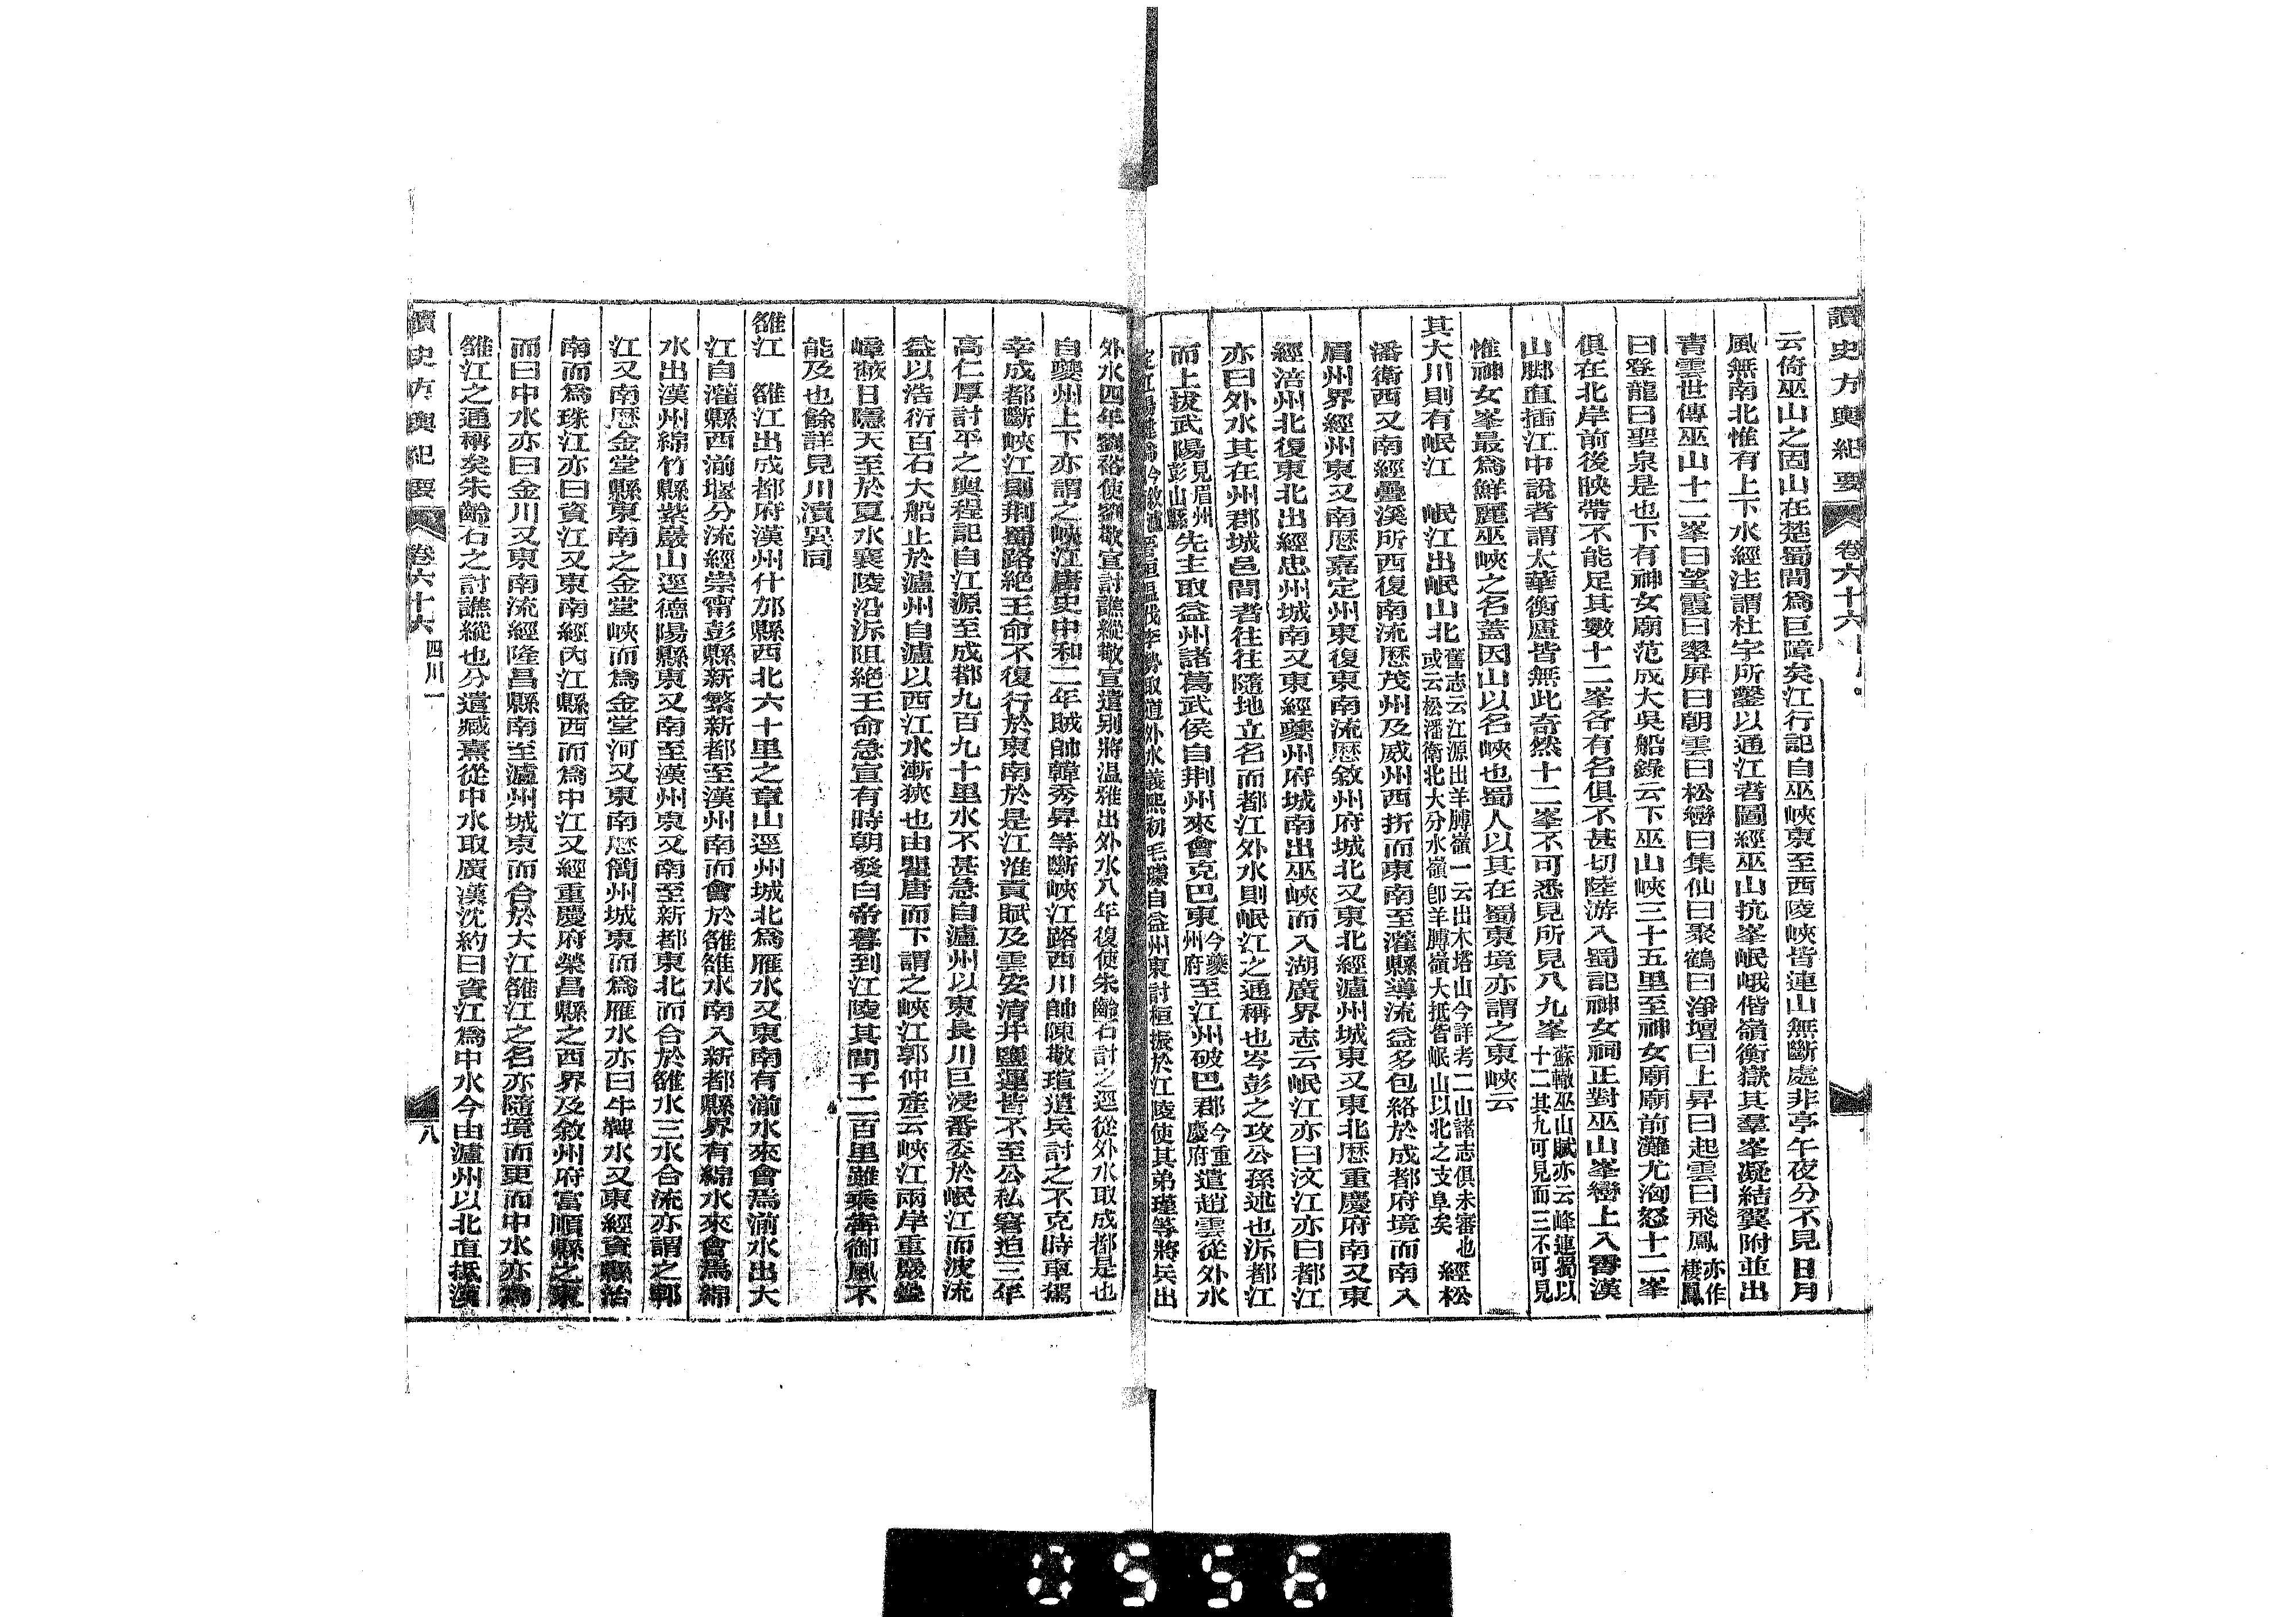 讀史方輿紀要 卷六十六
云倚巫山之固山在楚蜀間爲巨障矣江行記自巫峽東至西陵峽皆連山無斷處非亭午夜分不見日月
風無南北惟有上下水經注謂杜宇所鑿以通江者圖經巫山抗峯岷峨偕嶺衡嶽其羣峯凝結翼附並出
青雲世傳巫山十二峯曰望霞曰翠屏曰朝雲曰松巒曰集仙曰聚鶴曰淨壇曰上昇曰起雲曰飛鳳亦作棲鳳
曰登龍曰聖泉是也下有神女廟范成大吳船錄云下巫山峽三十五里至神女廟廟前灘尤洶怒十二峯
俱在北岸前後映帶不能足其數十二峯各有名俱不甚切陸游入蜀記神女祠正對巫山峯巒上入霄漢
山腳直插江中說者謂太華衡廬皆無此奇然十二峯不可悉見所見八九峯蘇轍巫山賦亦云峰連屬以十二其九可見而三不可見
惟神女峯最爲鮮麗巫峽之名蓋因山以名峽也蜀人以其在蜀東境亦謂之東峽云
其大川則有岷江 岷江出岷山北舊志云江源出羊膊嶺一云出木塔山今詳考二山諸志俱未審也或云松潘衛北大分水嶺卽羊膊嶺大抵皆岷山以北之支阜矣經松
潘衛西又南經疊溪所西復南流歷茂州及威州西折而東南至灌縣導流益多包絡於成都府境而南入
眉州界經州東又南歷嘉定州東復東南流歷敘州府城北又東北經瀘州城東又東北歷重慶府南又東
經涪州北復東北出經忠州城南又東經夔州府城南出巫峽而入湖廣界志云岷江亦曰汶江亦曰都江
亦曰外水其在州郡城邑間者往往隨地立名而都江外水則岷江之通稱也岑彭之攻公孫述也泝都江
而上拔武陽見眉州彭山縣先主取益州諸葛武侯自荆州來會克巴東今夔州府至江州破巴郡今重慶府遣趙雲從外水
桓溫伐李勢取道外水義熙初毛璩自益州東討桓振於江陵使其弟瑾等將兵出
外水四年劉裕使劉敬宣討譙縱敬宣遣別將溫祚出外水八年復使朱齡石討之逕從外水取成都是也
自夔州上下亦謂之峽江唐史中和二年賊帥韓秀昇等斷峽江路西川帥陳敬瑄遣兵討之不克時車駕
幸成都斷峽江則荆蜀路絶王命不復行於東南於是江淮貢賦及雲安淯井鹽運皆不至公私窘迫三年
高仁厚討平之輿程記自江源至成都九百九十里水不甚急自瀘州以東長川巨浸番委於岷江而波流
益以浩衍百石大船止於瀘州自瀘以西江水漸狹也由瞿唐而下謂之峽江郭仲產云峽江兩岸重巖疊
嶂蔽日隱天至於夏水襄陵沿泝阻絶王命急宣有時朝發白帝暮到江陵其間千二百里雖乘奔御風不
能及也餘詳見川瀆異同
雒江 雒江出成都府漢州什邡縣西北六十里之章山逕州城北爲雁水又東南有湔水來會焉湔水出大
江自灌縣西湔堰分流經崇寧彭縣新繁新都至漢州南而會於雒雒水南入新都縣界有綿水來會焉綿
水出漢州綿竹縣紫巖山逕德陽縣東又南至漢州東又南至新都東北而合於雒水三水合流亦謂之郫
江又南歷金堂縣東南之金堂峽而爲金堂河又東南歷簡州城東而爲雁水亦曰牛鞞水又東經資縣治
南而爲珠江亦曰資江又東南經內江縣西而爲中江又經重慶府榮昌縣之西界及敘州府富順縣之東
而曰中水亦曰金川又東南流經隆昌縣南至瀘州城東而合於大江雒江之名亦隨境而更而中水亦爲
雒江之通稱矣朱齡石之討譙縱也分遣臧熹從中水取廣漢沈約曰資江爲中水今由瀘州以北直抵漢
讀史方輿紀要 卷六十六 四川一 八
0556